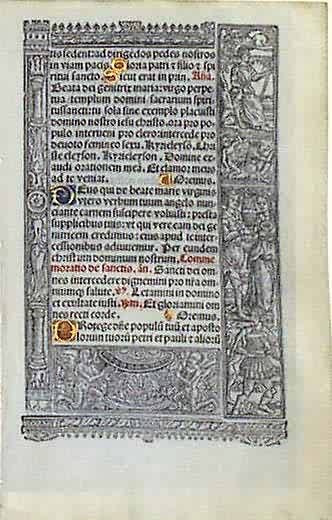 tis sedent: ad dirigēdos pedes nostros
in viam pacis. Gloria patri & filio & spi
ritui sancto. Sicut erat in prin. Aña.
Beata dei genitrix maria: virgo perpe
tua: templum domini sacrarium spiri
tussancti: tu sola sine exemplo placuisti
domino nostro iesu christo. ora pro po
pulo interueni pro clero: intercede pro
deuoto femineo sexu. Kyrieleyson. Chri
ste eleyson. Kyrieleyson. Domine ex
audi orationem meā. Et clamor meus
ad te veniat. Oremus.
Deus qui de beate marie virginis
vtero verbum tuum angelo nun
ciante carnem suscipere voluisti: presta
supplicibus tuis: vt qui vere eam dei ge
nitricem credimus: eius apud te inter
cessionibus adiuuemur. Per eundem
christum dominum nostrum. Comme
moratio de sanctis. añ. Sancti dei om
nes intercedere dignemini pro nr̄a om
niumq; salute. Letamini in domino
et exultate iusti. Et gloriamini om
nes recti corde. Oremus.
Protege dñe populū tuū et aposto
lorum tuorū petri et pauli & aliorū